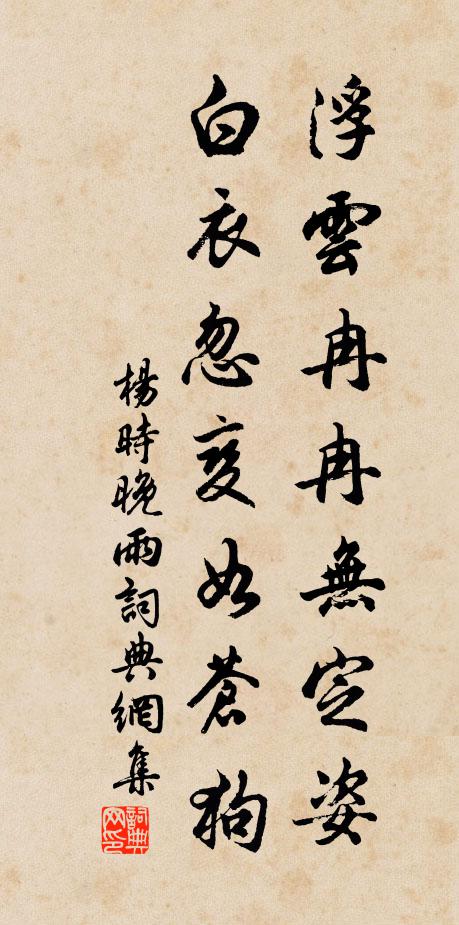 浮雲冉冉無定姿
白衣忽变如蒼狗
楊時晚雨詞典網集
詞典网印